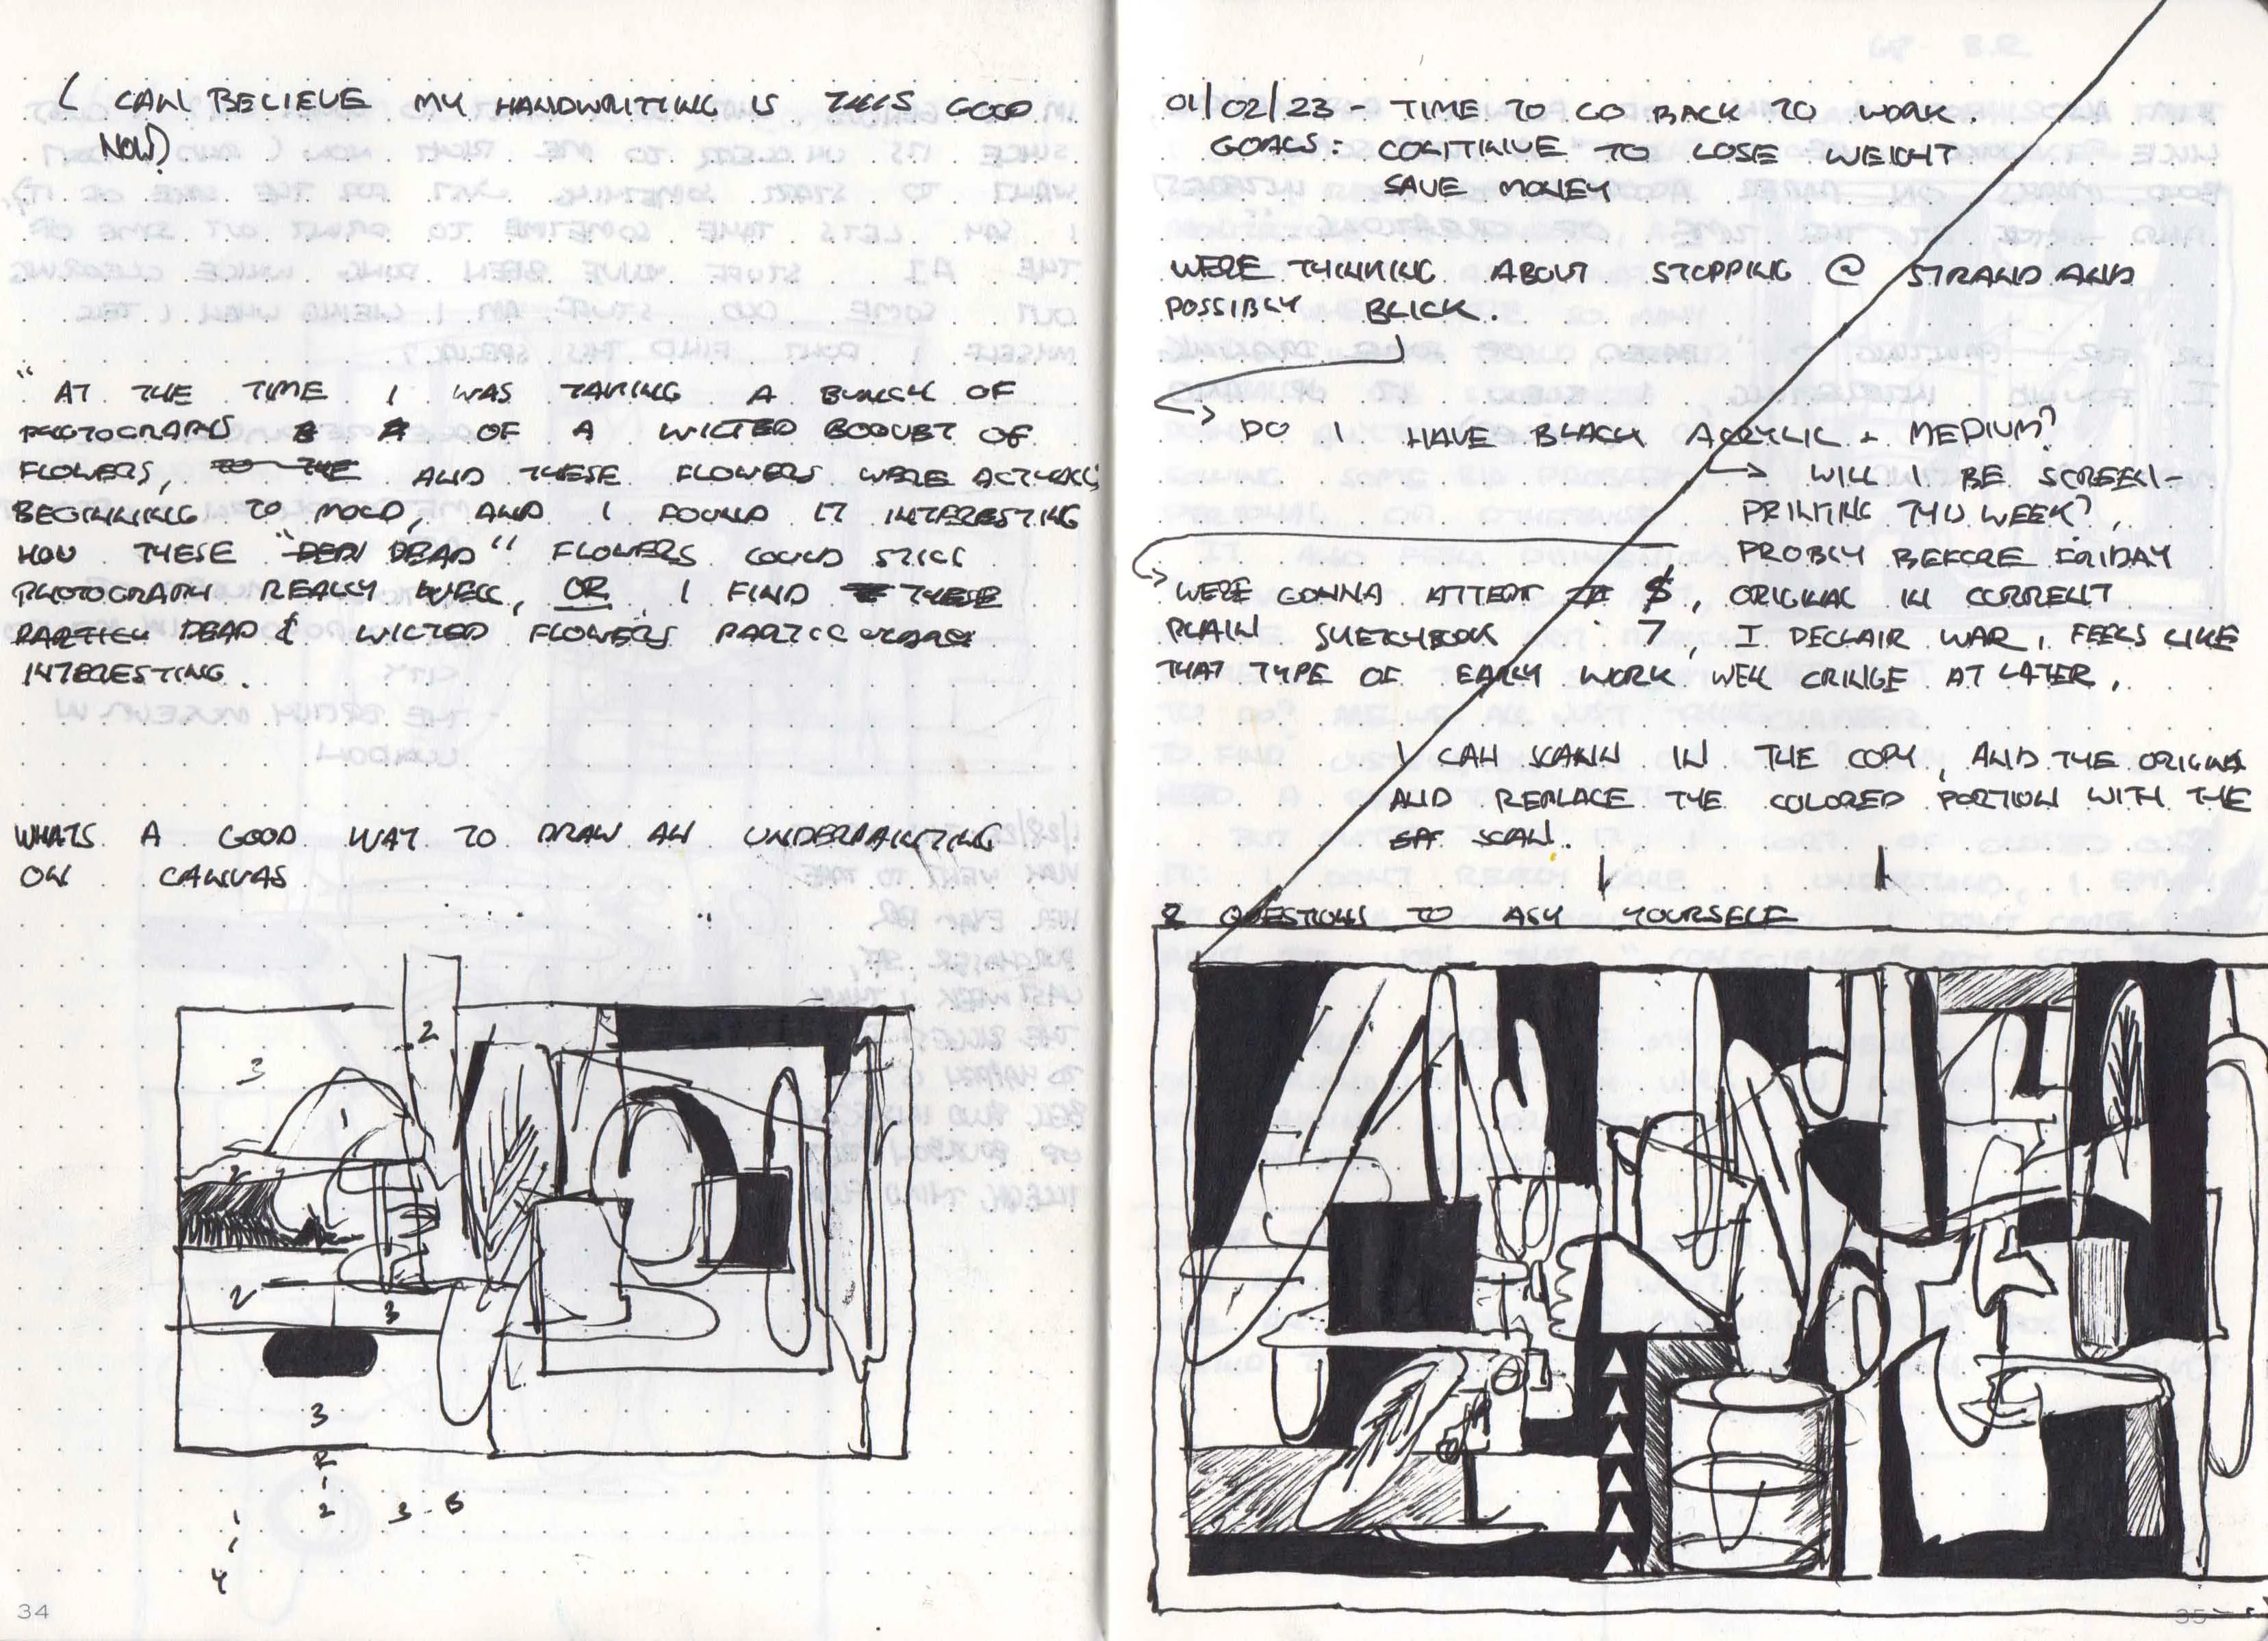 ( CAN BELIEVE MY HANDWRITING IS THIS GOOD
NOW)
"AT THE TIME I WAS TAKING A BUNCH OF
PHOTOGRAPHS OF A WILTED BOQUET OF
FLOWERS, TO THE AND THESE FLOWERS WERE ACTUALLY
BEGINNING TO MOLD, AND I FOUND IT INTERESTING
HOW THESE "DEAD" FLOWERS COULD STILL
PHOTOGRAPH REALLY WELL, OR, I FIND THESE
DEAD & WILTED FLOWERS
INTERESTING.
WHATS A GOOD WAY TO DRAW AN UNDERPAINTING
ON CANVAS
2
3
1
2
3
3
R
1
2 3-5
4
34
01/02/23 - TIME TO GO BACK TO WORK.
GOALS: CONTINUE TO LOSE WEIGHT
SAVE MONEY
WERE THINKING ABOUT STOPPING @ STRAND AND
POSSIBLY BLICK.
DO I HAVE BLACK ACRYLIC + MEDIUM?
WILL I BE SCREEN-
PRINTING THIS WEEK?,
PROBLY BEFORE FRIDAY
WERE GONNA ATTEPT $, ORIGINAL IN CURRENT
PLAIN SKETCHBOOK 7, I DECLAIR WAR, FEELS LIKE
THAT TYPE OF EARLY WORK WELL CRINGE AT LATER,
I CAN SCANN IN THE COPY, AND THE ORIGINAL
AND REPLACE THE COLORED PORTION WITH THE
SCAN.
2 QUESTIONS TO ASK YOURSELF
35